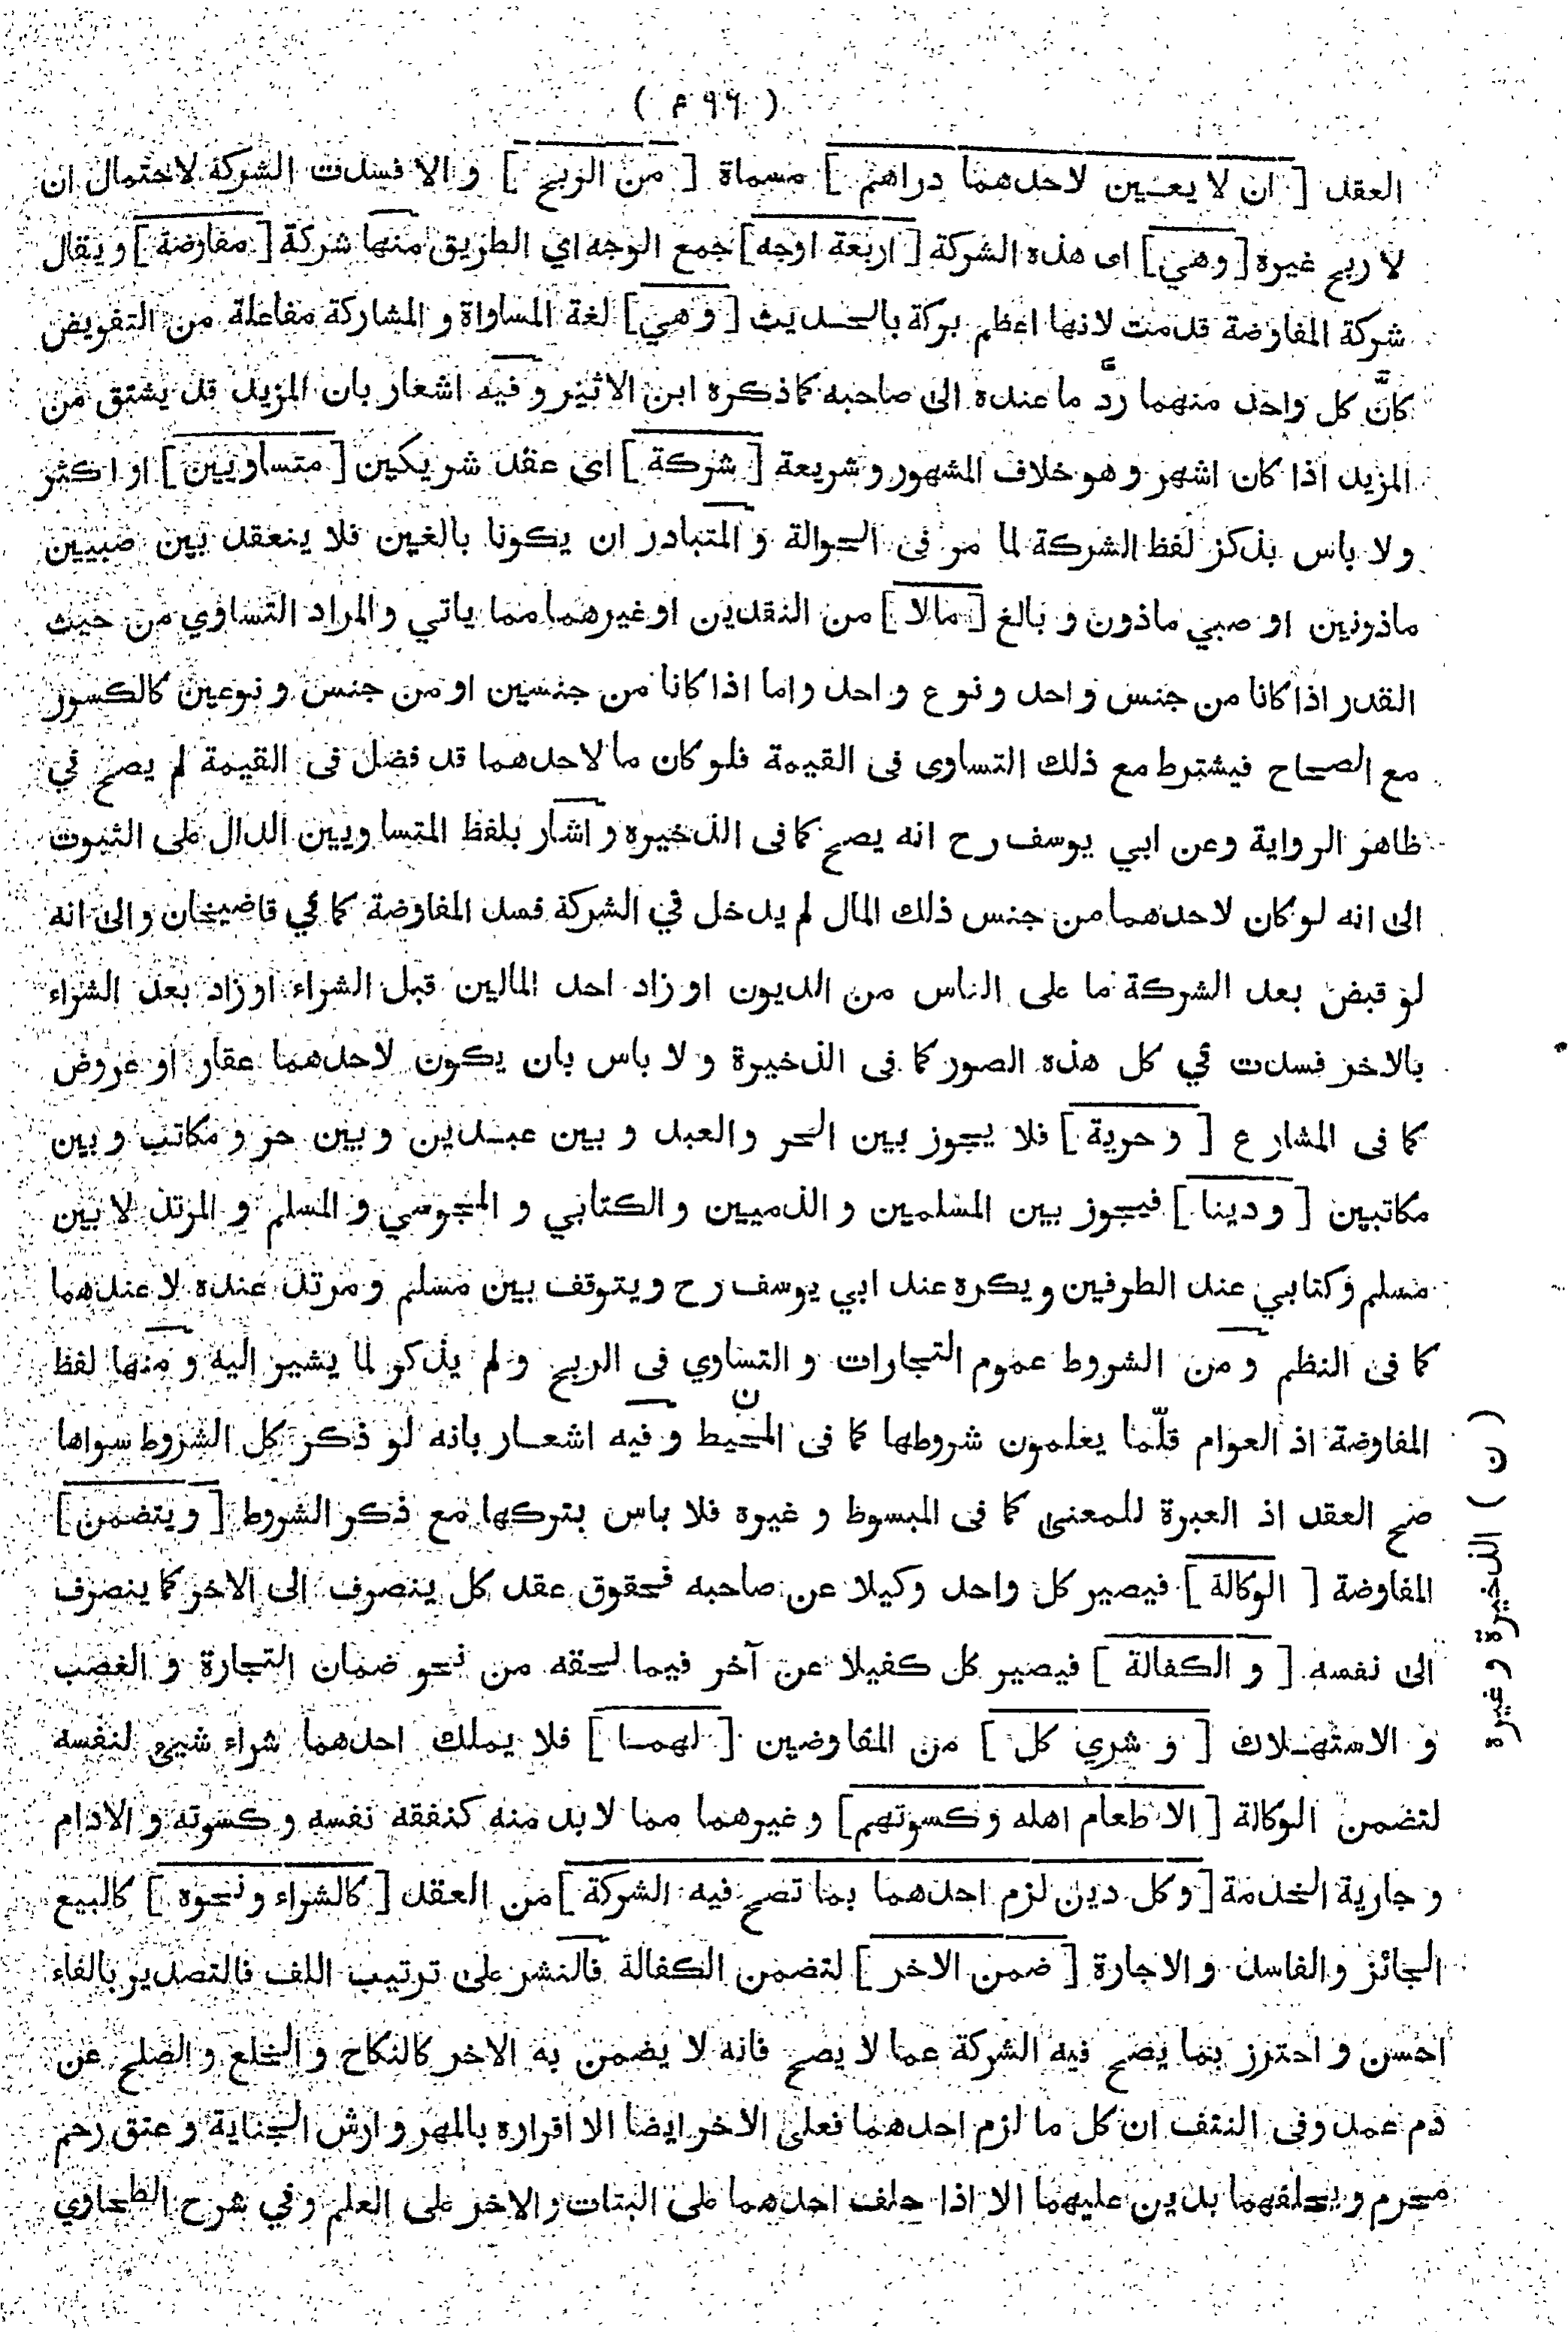 ( ۴۹۶ )
العقد [ ان لا يعين لاحدهما دراهم ] مسماة [ من الربح ] و الا فسدت الشركة لاحتمال ان
لا ربح غيره [ وهي ] اى هذه الشركة [ اربعة اوجه ] جمع الوجه اي الطريق منها شركة [ مفاوضة ] و يقال
شركة المفاوضة قدمت لانها اعظم بركة بالحديث [ وهي ] لغة المساواة و المشاركة مفاعلة من التفويض
كانّ كل واحد منهما ردّ ما عنده الى صاحبه كما ذكره ابن الاثير و فيه اشعار بان المزيد قد يشتق من
المزيد اذا كان اشهر و هو خلاف المشهور و شريعة [ شركة ] اى عقد شريكين [ متساويين ] او اكثر
ولا باس بذكر لفظ الشركة لما مر فى الحوالة و المتبادر ان يكونا بالغين فلا ينعقد بين صبيين
ماذونين او صبي ماذون و بالغ [ مالا ] من النقدين او غيرهما مما ياتي و المراد التساوي من حيث
القدر اذا كانا من جنس واحد و نوع واحد واما اذا كانا من جنسين او من جنس و نوعين كالكسور
مع الصحاح فيشترط مع ذلك التساوى فى القيمة فلو كان ما لاحدهما قد فضل فى القيمة لم يصح في
ظاهر الرواية وعن ابي يوسف رح انه يصح كما فى الذخيرة و اشار بلفظ المتساويين الدال على الثبوت
الى انه لو كان لاحدهما من جنس ذلك المال لم يدخل في الشركة فسد المفاوضة كما في قاضيخان و الى انه
لو قبض بعد الشركة ما على الناس من الديون او زاد احد المالين قبل الشراء او زاد بعد الشراء
بالاخر فسدت في كل هذه الصور كما فى الذخيرة و لا باس بان يكون لاحدهما عقار او عروض
كما فى المشارع [ و حرية ] فلا يجوز بين الحر و العبد و بين عبدين و بين حر و مكاتب و بين
مكاتبين [ و دينا ] فيجوز بين المسلمين و الذميين و الكتابي و المجوسي و المسلم و المرتد لا بين
مسلم و كتابي عند الطرفين و يكره عند ابي يوسف رح و يتوقف بين مسلم و مرتد عنده لا عندهما
كما فى النظم و من الشروط عموم التجارات و التساوي فى الربح و لم يذكر لما يشير اليه و منها لفظ
المفاوضة اذ العوام قلّما يعلمون شروطها كما فى المحيط ن و فيه اشعار بانه لو ذكر كل الشروط سواها
صح العقد اذ العبرة للمعنى كما فى المبسوط و غيره فلا باس بتركها مع ذكر الشروط [ و يتضمن ]
المفاوضة [ الوكالة ] فيصير كل واحد وكيلا عن صاحبه فحقوق عقد كل ينصرف الى الاخر كما ينصرف
الى نفسه [ و الكفالة ] فيصير كل كفيلا عن آخر فيما لحقه من نحو ضمان التجارة و الغصب
و الاستهلاك [ و شري كل ] من المفاوضين [ لهما ] فلا يملك احدهما شراء شيئ لنفسه
لتضمن الوكالة [ الا طعام اهله و كسوتهم ] و غيرهما مما لا بد منه كنفقه نفسه و كسوته و الادام
و جارية الخدمة [ و كل دين لزم احدهما بما تصح فيه الشركة ] من العقد [ كالشراء و نحوه ] كالبيع
الجائز و الفاسد و الاجارة [ ضمن الاخر ] لتضمن الكفالة فالنشر على ترتيب اللف فالتصدير بالفاء
احسن و احترز بما يصح فيه الشركة عما لا يصح فانه لا يضمن به الاخر كالنكاح و الخلع و الصلح عن
دم عمد و فى النتف ان كل ما لزم احدهما فعلى الاخر ايضا الا اقراره بالمهر و ارش الجناية و عتق رحم
محرم و يحلفهما بدين عليهما الا اذا حلف احدهما على البتات و الاخر على العلم و في شرح الطحاوي
( ن ) الذخيرة و غيرة